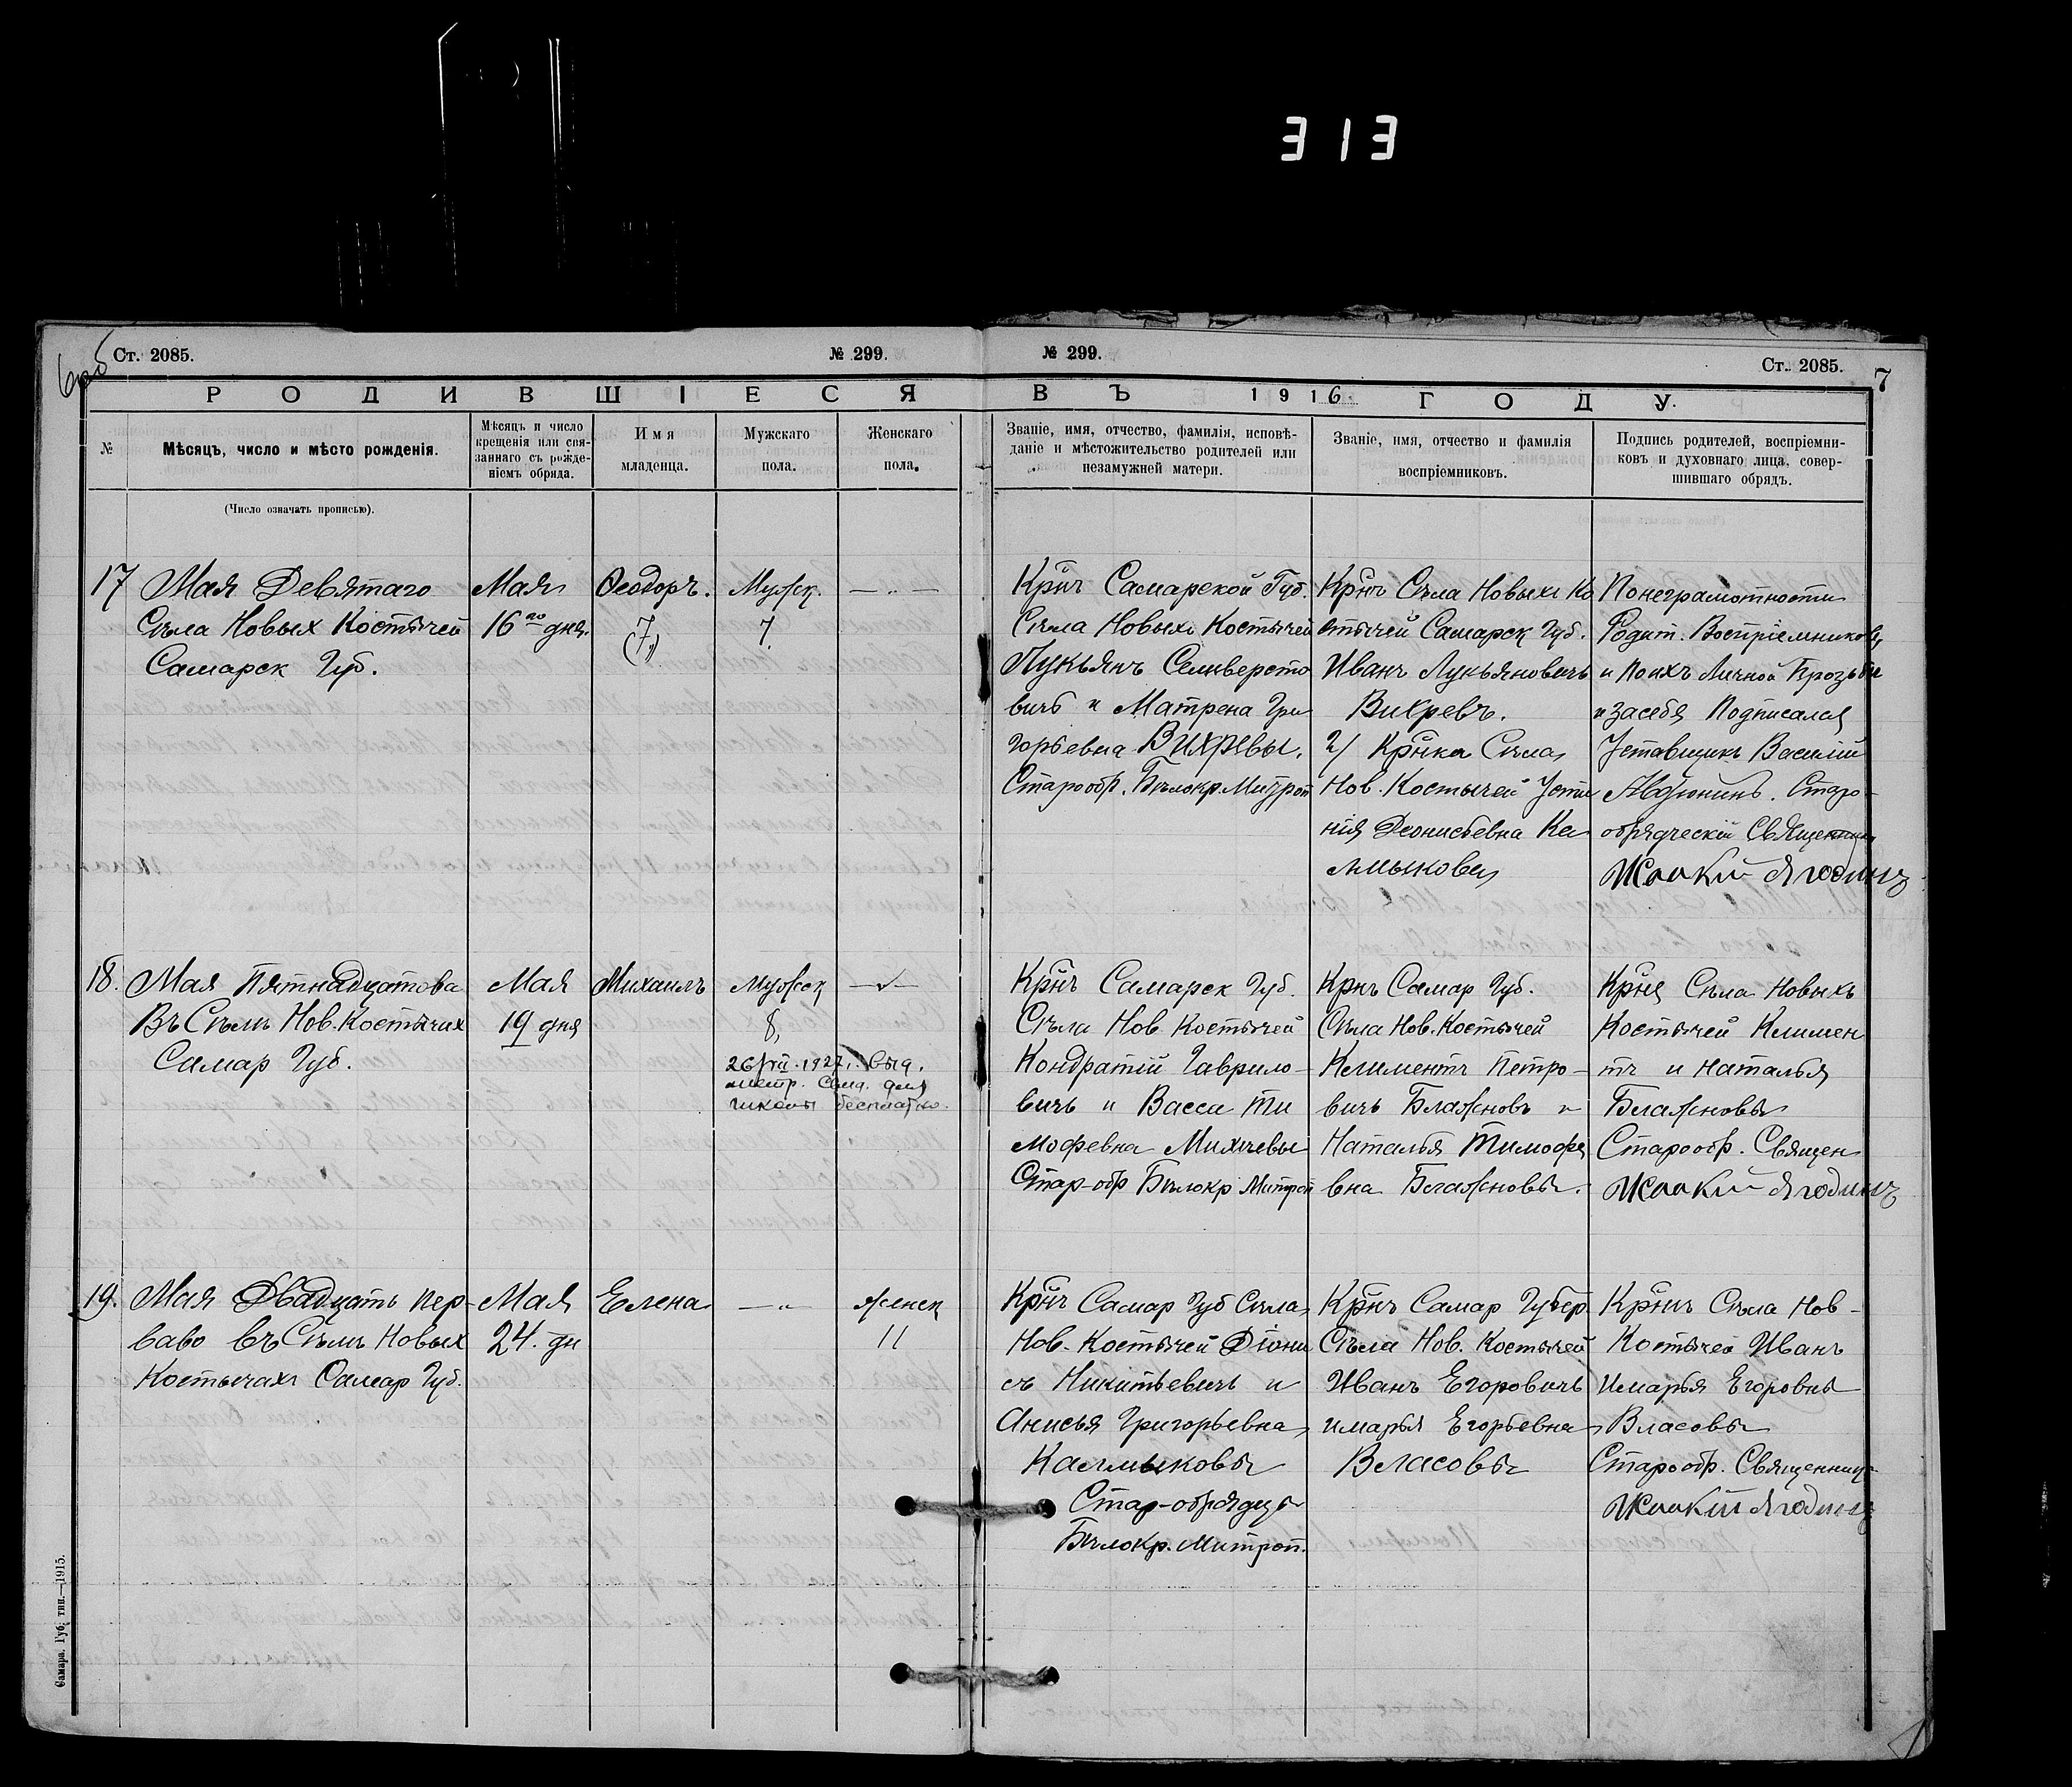 313
6 об
Ст. 2085.
№ 299.
№ 299.
Ст. 2085.
7
РОДИВШІЕСЯ
ВЪ 1916 ГОДУ.
№
Мѣсяцъ, число и мѣсто рожденія.
(Число означать прописью).
Мѣсяцъ и число
крещенія или свя-
заннаго съ рожде-
ніемъ обряда.
Имя
младенца.
Мужскаго
пола.
Женскаго
пола.
Званіе, имя, отчество, фамилія, исповѣ-
даніе и мѣстожительство родителей или
незамужней матери.
Званіе, имя, отчество и фамилія
воспріемниковъ.
Подпись родителей, воспріемни-
ковъ и духовнаго лица, совер-
шившаго обрядъ.
17
Мая Девятаго
Съла Новых Костычей
Самарск Губ.
Мая
16го дня.
Ѳеодоръ.
(7)
Мужск.
7
— „ —
Крнъ Самарской Губ.
Съла Новыхъ Костычей
Лукьянъ Селиверсто
вичъ и Матрена Гри
горьевна Вихревы.
Старообр. Бѣлокр. Митроп
Крнъ Съла Новыхъ Ко
стычей Самарск Губ.
Иванъ Лукьяновичъ
Вихревъ.
2/ Крнка Съла
Нов. Костычей Усти
нія Деонисьевна Ка
лмыкова
Понеграмотности
Родит. Воспріемниковъ,
и Поихъ Личной Прозьбы
и засебя Подписался
Уставщикъ Василій
Авдюнинъ. Старо-
обрядческій Священник
Іоакий Ягодинъ
18.
Мая Пятнадцатова
Въ Сълъ Нов. Костычих
Самар Губ.
Мая
19 дня
Михаилъ
Мужск
8,
26/VII.1927г. выд.
метр. Свид. для
школы бесплатно.
Крнъ Самарск Губ.
Съла Нов. Костычей
Кондратій Гаврило-
вичъ и Васса Ти
мофевна Михѣевы
Стар-обр Бѣлокр Митроп
Крнъ Самар Губ.
Съла Нов. Костычей
Климентъ Петро-
вичъ Блажновъ и
Наталья Тимофе
вна Блажновы.
Крне Съла Новыхъ
Костычей Климен
тъ и Наталья
Блажновы
Старообр. Священ
Іоакий Ягодинъ
19.
Мая Двадцать пер-
ваво въ Сълъ Новых
Костычахъ Самар Губ.
Мая
24. дн
Елена
— „
женск
11
Крнъ Самар Губ Съла
Нов. Костычей Діони
съ Никитьевичъ и
Анисья Григорьевна
Калмыковы
Стар-обрядцы
Бѣлокр. Митроп.
Крнъ Самар Губер.
Съла Нов. Костычей
Иванъ Егоровичъ
имарья Егорьевна
Власовы
Крнъ Съла Нов-
Костычей Иванъ
имарья Егоровны
Власовы
Старообр. Священник
Іоакий Ягодинъ
Самара. Губ. тип.—1915.